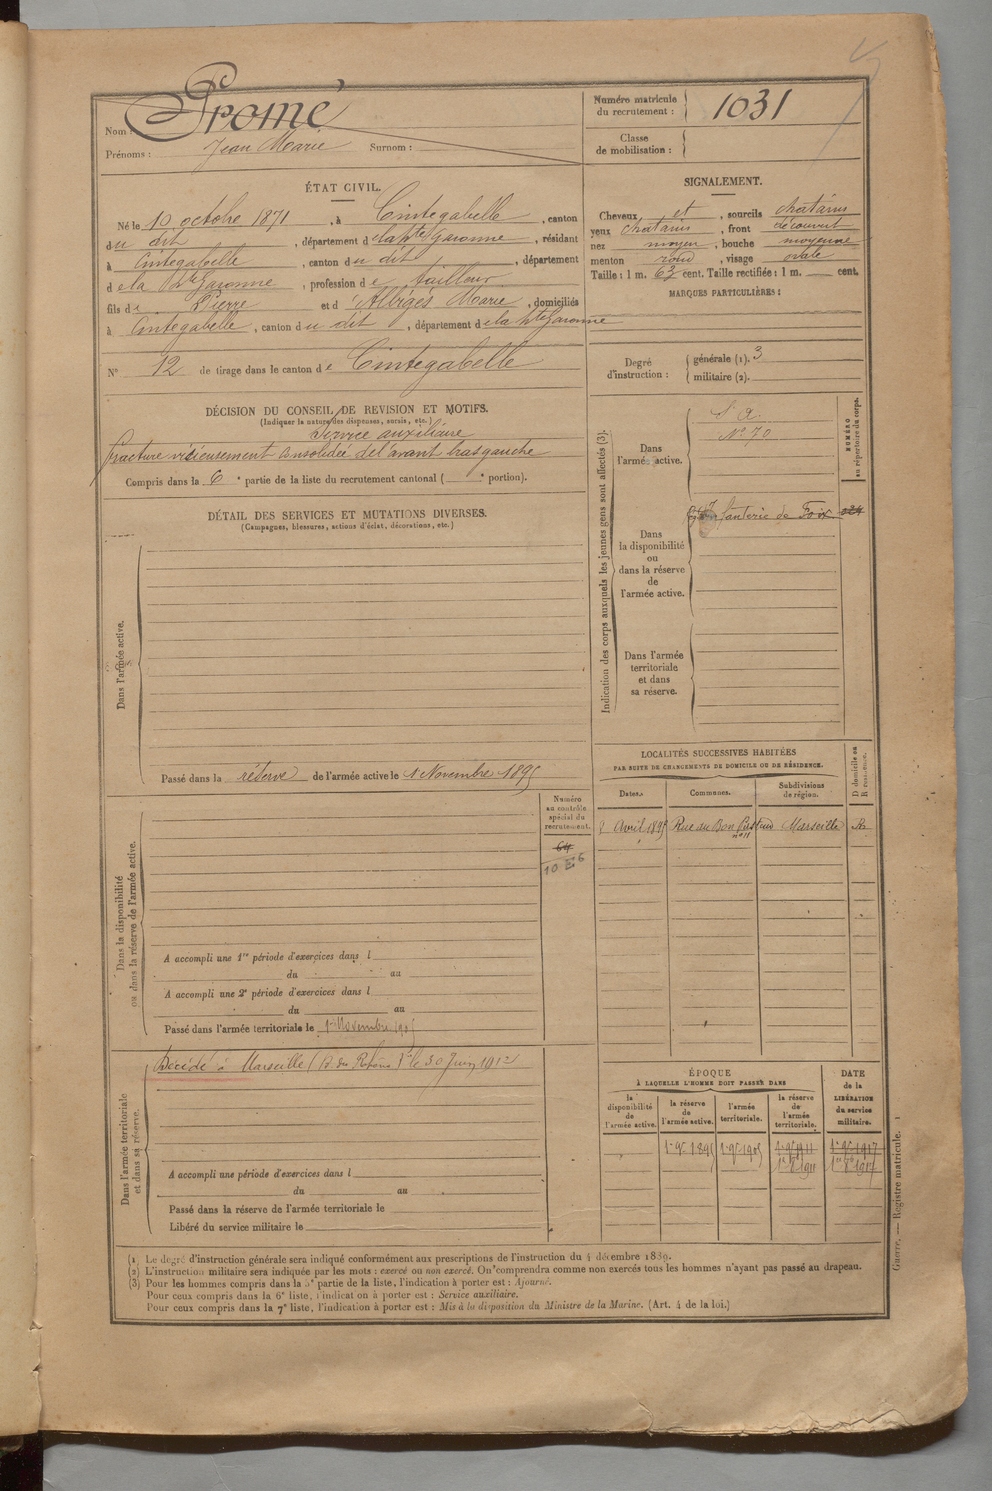 Nom : Promé
Prénoms : Jean Marie Surnom :
Numéro matricule du recrutement : 1031
Classe de mobilisation :
ÉTAT CIVIL.
Né le 10 octobre 1871, à Cintegabelle, canton
du dit, département de la Hte Garonne, résidant
à Cintegabelle, canton du dit, département
de la Hte Garonne, profession de tailleur
fils de Pierre et d'Albigés Marie, domiciliés
à Cintegabelle, canton du dit, département de la Hte Garonne
N° 12 de tirage dans le canton de Cintegabelle
SIGNALEMENT.
Cheveux et, sourcils chatains
yeux chatains, front découvert
nez moyen, bouche moyenne
menton rond, visage ovale
Taille : 1 m. 63 cent. Taille rectifiée : 1 m. cent.
MARQUES PARTICULIÈRES :
Degré d'instruction : générale (1). 3
militaire (2).
DÉCISION DU CONSEIL DE REVISION ET MOTIFS.
(Indiquer la nature des dispenses, sursis, etc.)
Service auxiliaire
fracture vicieusement consolidée de l'avant bras gauche
Compris dans la 6e partie de la liste du recrutement cantonal ( e portion).
DÉTAIL DES SERVICES ET MUTATIONS DIVERSES.
(Campagnes, blessures, actions d'éclat, décorations, etc.)
Dans l'armée active.
Passé dans la réserve de l'armée active le 1 Novembre 1895
Indication des corps auxquels les jeunes gens sont affectés (3).
NUMÉRO au répertoire du corps.
Dans l'armée active.
S. A.
N° 70
Dans la disponibilité ou dans la réserve de l'armée active.
Infanterie de Foix
Dans l'armée territoriale et dans sa réserve.
LOCALITÉS SUCCESSIVES HABITÉES
PAR SUITE DE CHANGEMENTS DE DOMICILE OU DE RÉSIDENCE.
Dates. Communes. Subdivisions de région. D domicile ou R résidence.
Avril 1895 Rue du Bon Pasteur n° 11 Marseille
Dans la disponibilité ou dans la réserve de l'armée active.
Numéro au contrôle spécial du recrutement.
64
10 E 6
A accompli une 1re période d'exercices dans l
du au
A accompli une 2e période d'exercices dans l
du au
Passé dans l'armée territoriale le 1er Novembre 1905
Dans l'armée territoriale et dans sa réserve.
Décédé à Marseille le 30 Juin 1912
A accompli une période d'exercices dans l
du au
Passé dans la réserve de l'armée territoriale le
Libéré du service militaire le
ÉPOQUE
À LAQUELLE L'HOMME DOIT PASSER DANS
la disponibilité de l'armée active. la réserve de l'armée active. l'armée territoriale. la réserve de l'armée territoriale.
DATE de la LIBÉRATION du service militaire.
1er 9bre 1895 1er 9bre 1905 1er 9bre 1911 1er 9bre 1917
1er 8bre 1911 1er 8bre 1917
(1) Le degré d'instruction générale sera indiqué conformément aux prescriptions de l'instruction du 4 décembre 1889.
(2) L'instruction militaire sera indiquée par les mots : exercé ou non exercé. On comprendra comme non exercés tous les hommes n'ayant pas passé au drapeau.
(3) Pour les hommes compris dans la 5e partie de la liste, l'indication à porter est : Ajourné.
Pour ceux compris dans la 6e liste, l'indication à porter est : Service auxiliaire.
Pour ceux compris dans la 7e liste, l'indication à porter est : Mis à la disposition du Ministre de la Marine. (Art. 4 de la loi.)
Guerre. — Registre matricule. 1